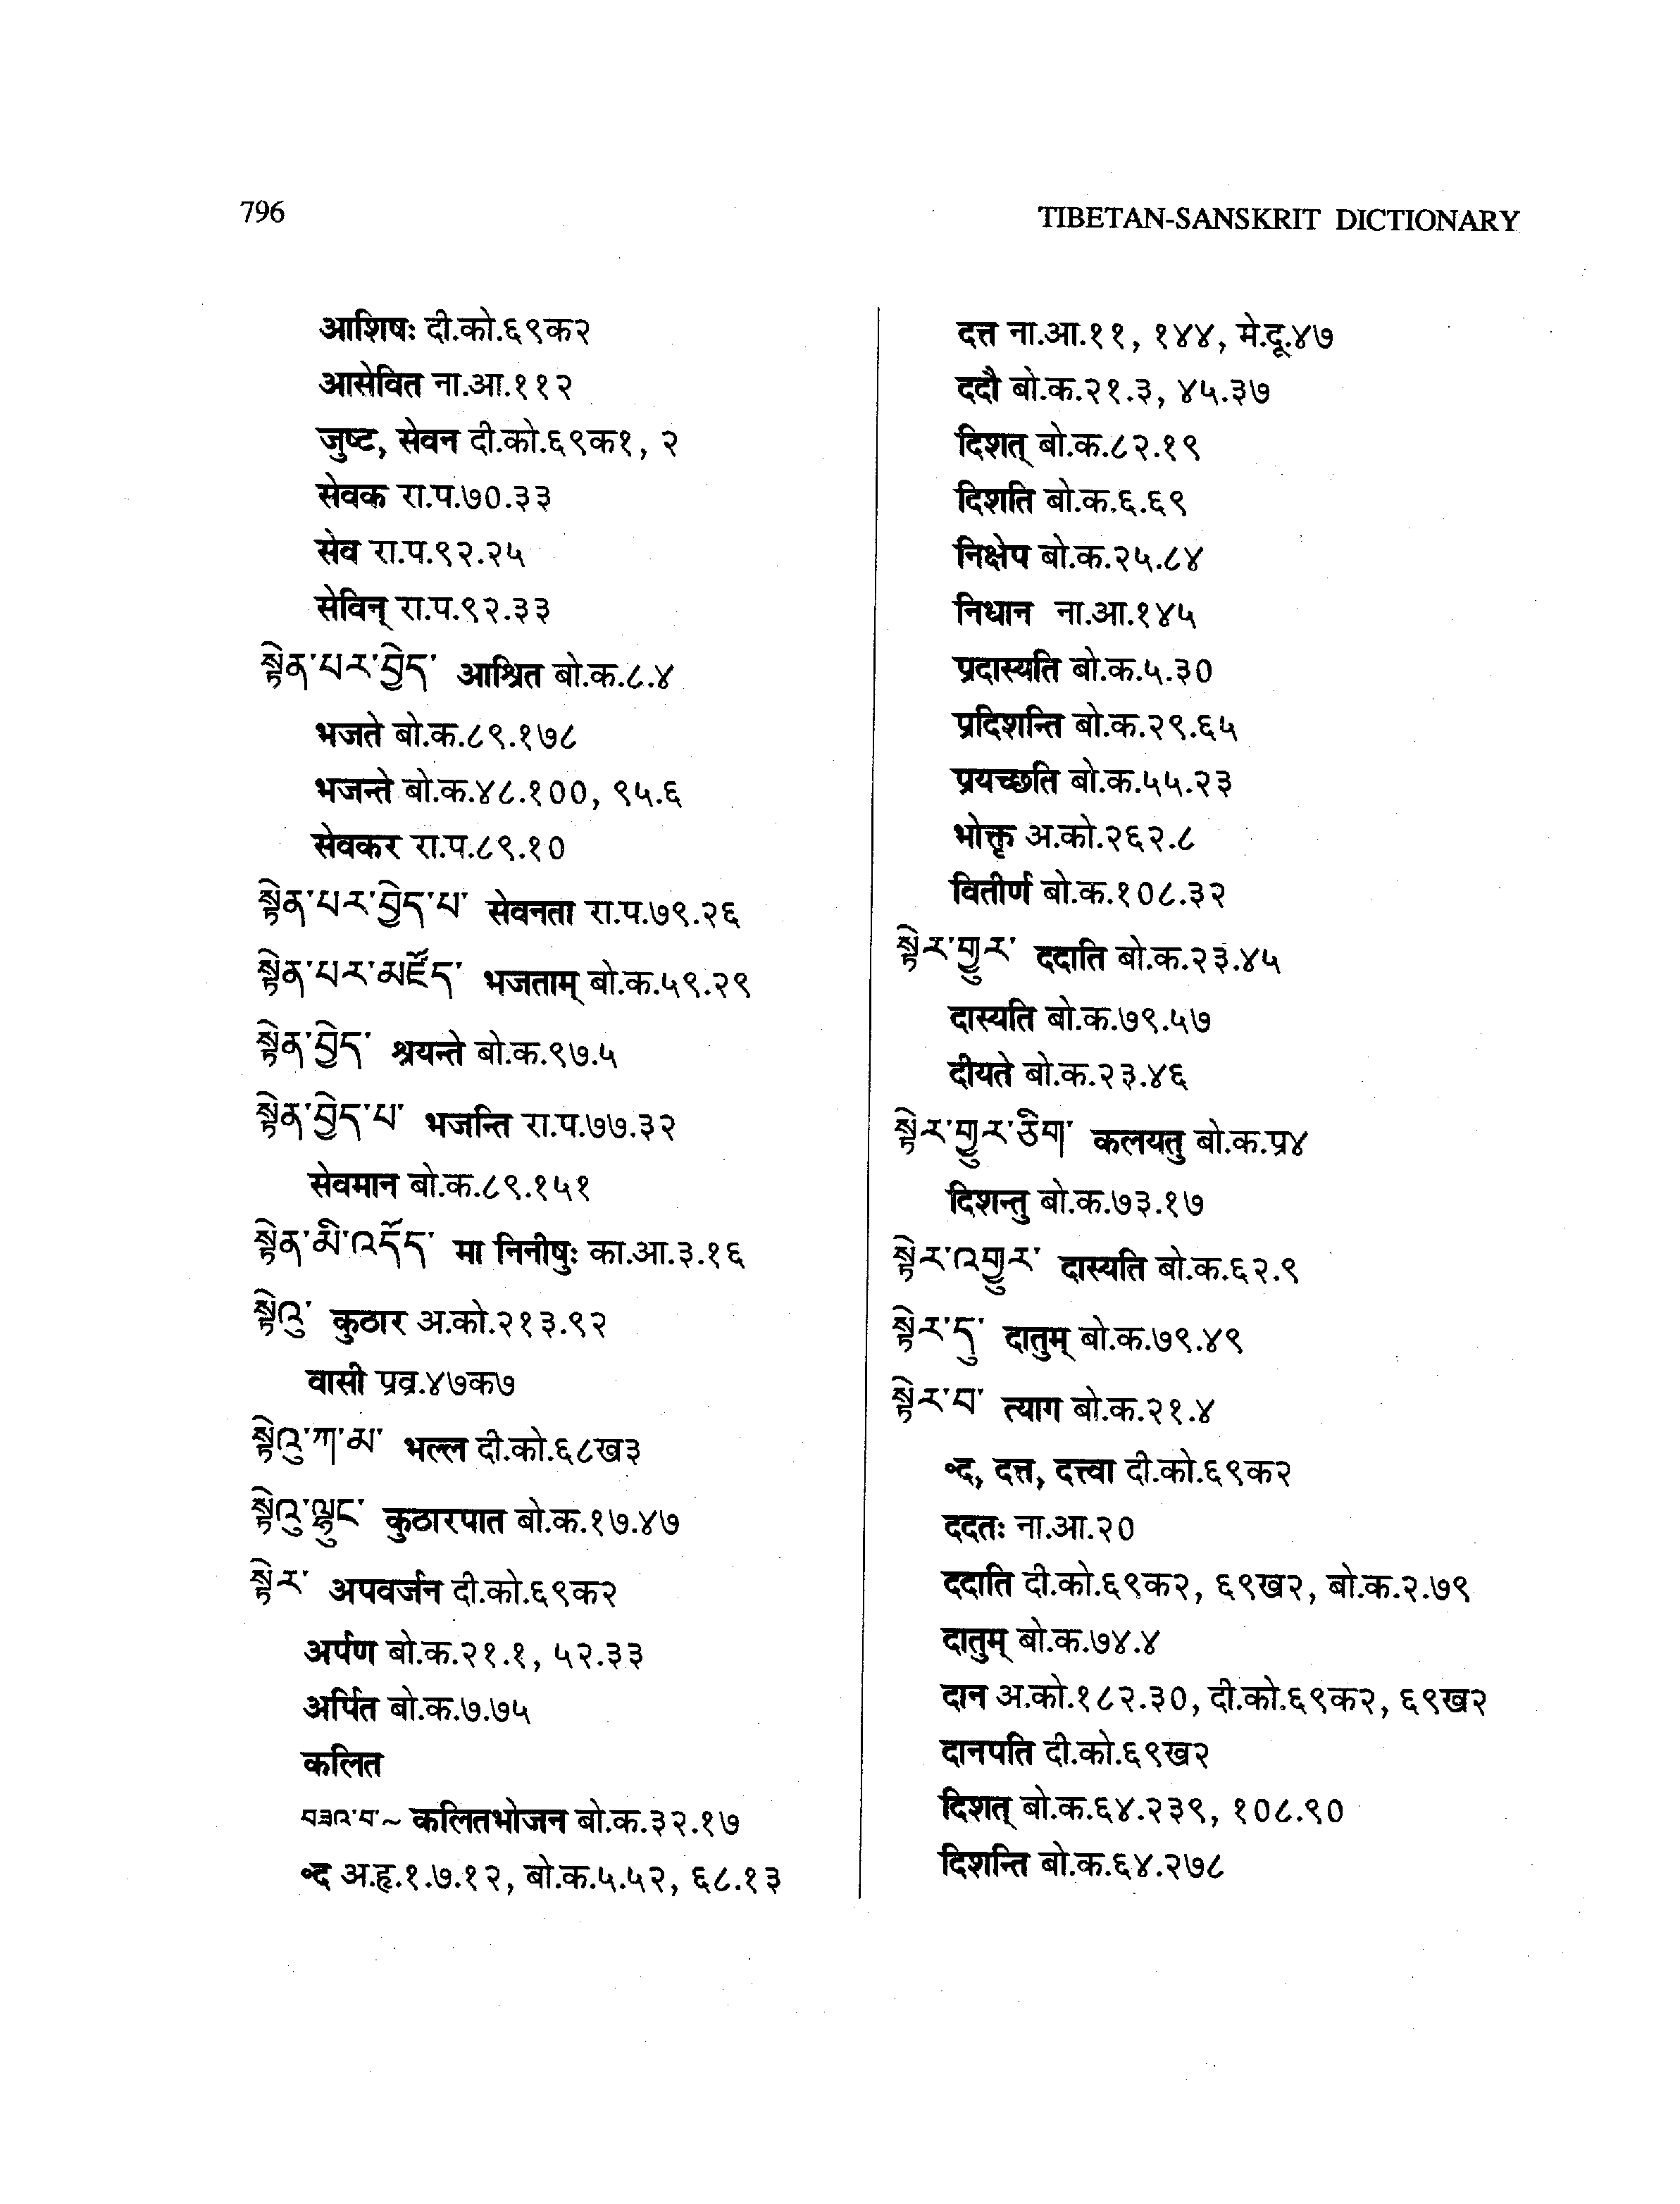 796
TIBETAN-SANSKRIT DICTIONARY
आशिषः दी.को.६९क२
आसेवित ना.आ.११२
जुष्ट, सेवन दी.को.६९क१, २
सेवक रा.प.७०.३३
सेव रा.प.९२.२५
सेविन् रा.प.९२.३३
སྟེན་པར་བྱེད་ आश्रित बो.क.८.४
भजते बो.क.८९.१७८
भजन्ते बो.क.४८.१००, ९५.६
सेवकर रा.प.८९.१०
སྟེན་པར་བྱེད་པ་ सेवनता रा.प.७९.२६
སྟེན་པར་མཛོད་ भजताम् बो.क.५९.२९
སྟེན་བྱེད་ श्रयन्ते बो.क.९७.५
སྟེན་བྱེད་པ་ भजन्ति रा.प.७७.३२
सेवमान बो.क.८९.१५१
སྟེན་མི་འདོད་ मा निनीषुः का.आ.३.१६
སྟེའུ་ कुठार अ.को.२१३.९२
वासी प्रव्र.४७क७
སྟེའུ་ཀ་མ་ भल्ल दी.को.६८ख३
སྟེའུ་ལྟུང་ कुठारपात बो.क.१७.४७
སྟེར་ अपवर्जन दी.को.६९क२
अर्पण बो.क.२१.१, ५२.३३
अर्पित बो.क.७.७५
कलित
བཟའ་བ་~ कलितभोजन बो.क.३२.१७
॰द अ.हृ.१.७.१२, बो.क.५.५२, ६८.१३
दत्त ना.आ.११, १४४, मे.दू.४७
ददौ बो.क.२१.३, ४५.३७
दिशत् बो.क.८२.१९
दिशति बो.क.६.६९
निक्षेप बो.क.२५.८४
निधान ना.आ.१४५
प्रदास्यति बो.क.५.३०
प्रदिशन्ति बो.क.२९.६५
प्रयच्छति बो.क.५५.२३
भोक्तृ अ.को.२६२.८
वितीर्ण बो.क.१०८.३२
སྟེར་གྱུར་ ददाति बो.क.२३.४५
दास्यति बो.क.७९.५७
दीयते बो.क.२३.४६
སྟེར་གྱུར་ཅིག་ कलयतु बो.क.प्र४
दिशन्तु बो.क.७३.१७
སྟེར་འགྱུར་ दास्यति बो.क.६२.९
སྟེར་དུ་ दातुम् बो.क.७९.४९
སྟེར་བ་ त्याग बो.क.२१.४
॰द, दत्त, दत्त्वा दी.को.६९क२
ददतः ना.आ.२०
ददाति दी.को.६९क२, ६९ख२, बो.क.२.७९
दातुम् बो.क.७४.४
दान अ.को.१८२.३०, दी.को.६९क२, ६९ख२
दानपति दी.को.६९ख२
दिशत् बो.क.६४.२३९, १०८.९०
दिशन्ति बो.क.६४.२७८